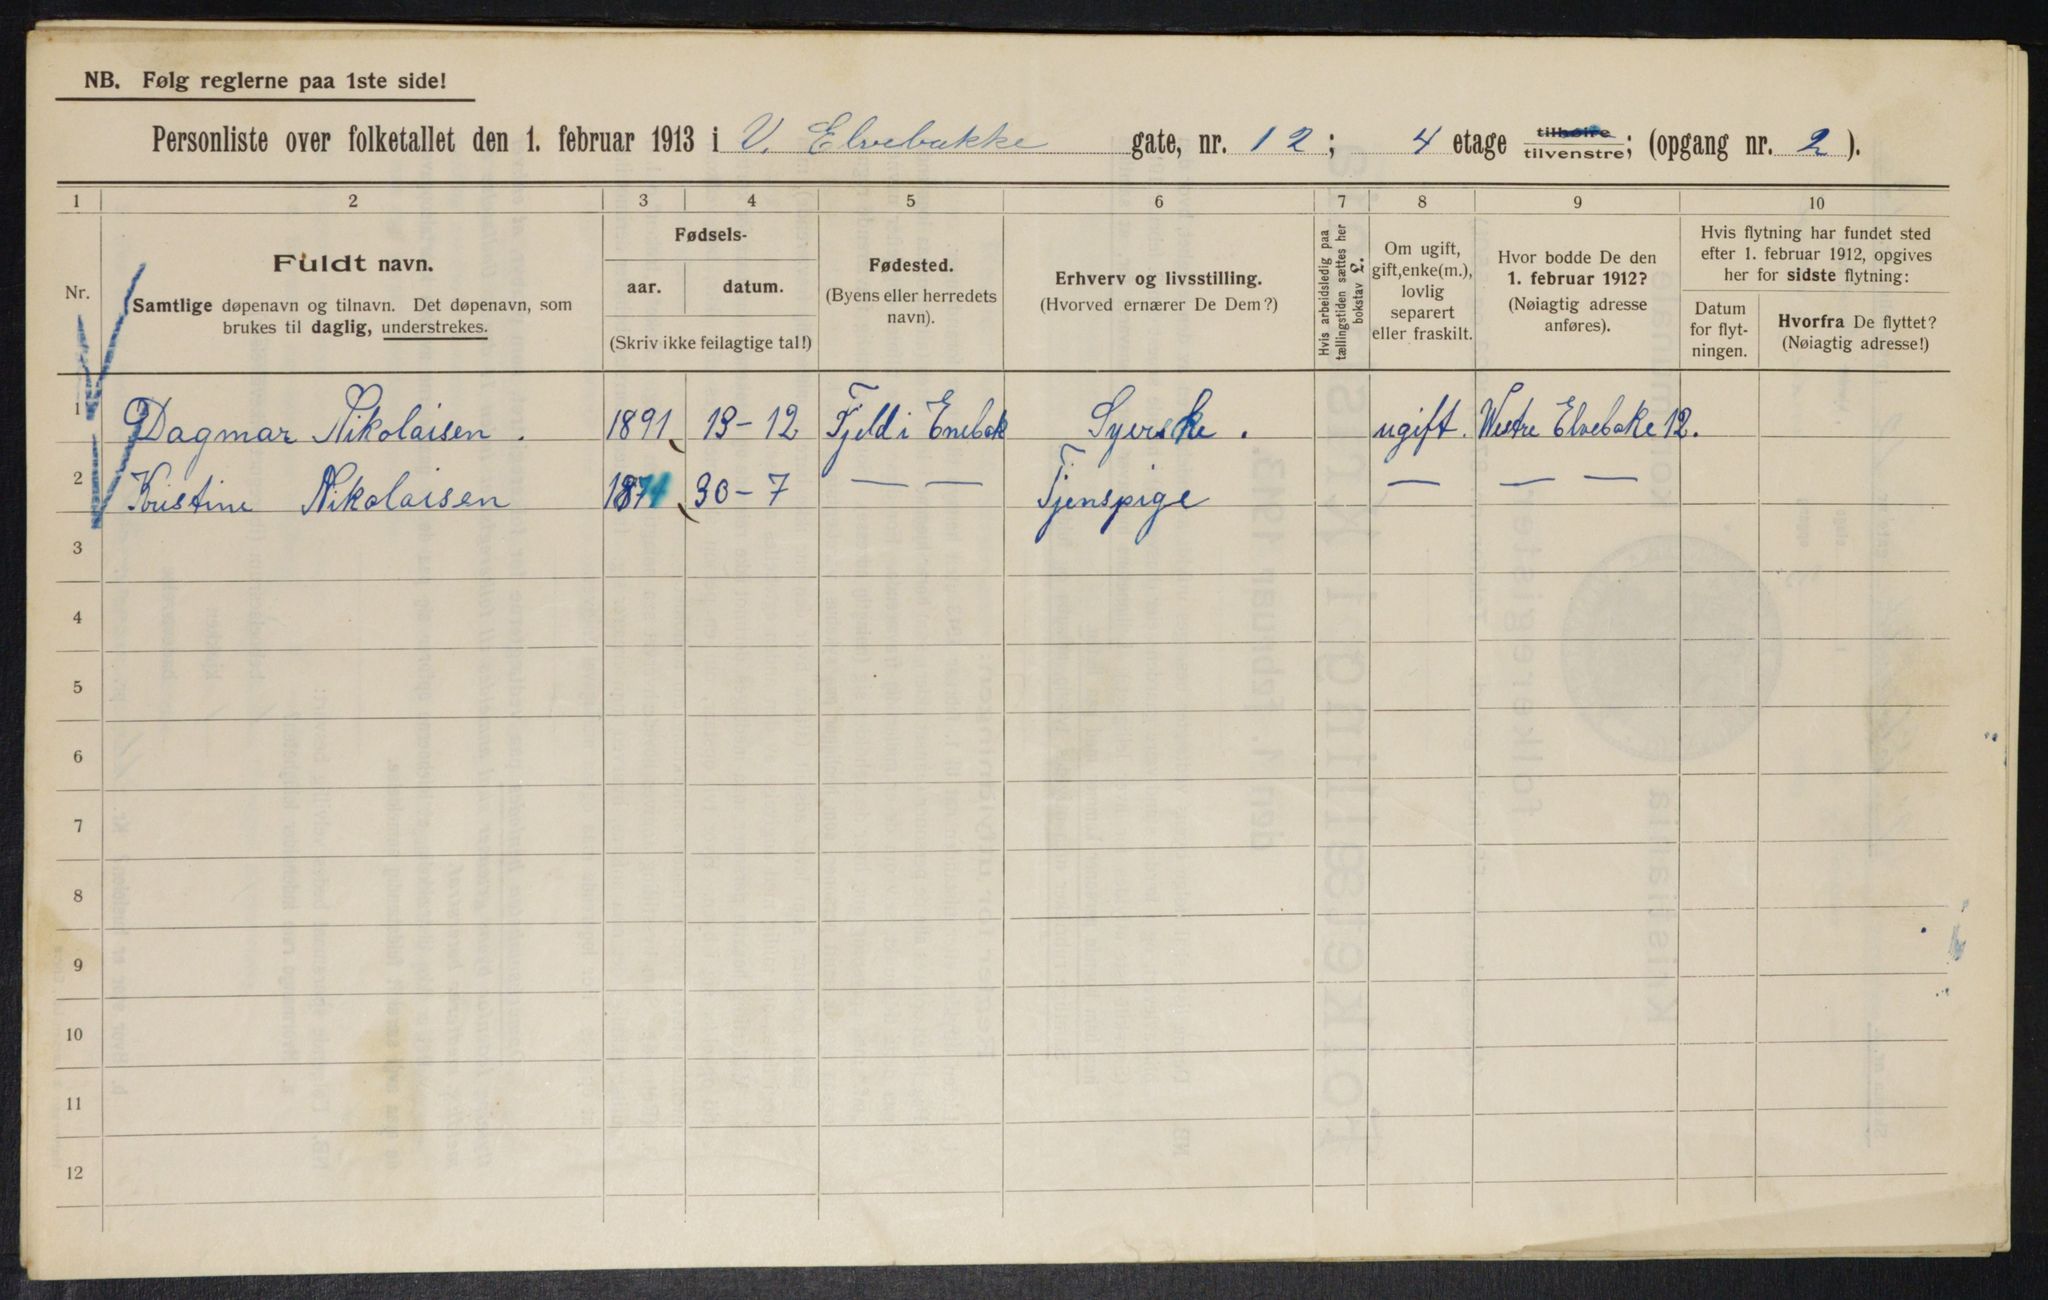 NB. Følg reglerne paa 1ste side!
Personliste over folketallet den 1. februar 1913 i V. Elvebakke gate, nr. 12; 4 etage tilhøire tilvenstre; (opgang nr. 2).
1 2 3 4 5 6 7 8 9 10
Nr.
Fuldt navn.
Samtlige døpenavn og tilnavn. Det døpenavn, som
brukes til daglig, understrekes.
Fødsels-
aar. datum.
(Skriv ikke feilagtige tal!)
Fødested.
(Byens eller herredets
navn).
Erhverv og livsstilling.
(Hvorved ernærer De Dem?)
Hvis arbeidsledig paa
tællingstiden sættes her
bokstav L.
Om ugift,
gift, enke(m.),
lovlig
separert
eller fraskilt.
Hvor bodde De den
1. februar 1912?
(Nøiagtig adresse
anføres).
Hvis flytning har fundet sted
efter 1. februar 1912, opgives
her for sidste flytning:
Datum
for flyt-
ningen.
Hvorfra De flyttet?
(Nøiagtig adresse!)
1 Dagmar Nikolaisen. 1891 13-12 Fjeld i Enebak Syerske. ugift. Westre Elvebake 12.
2 Kristine Nikolaisen 1871 30-7 — — Tjenspige — — —
3
4
5
6
7
8
9
10
11
12